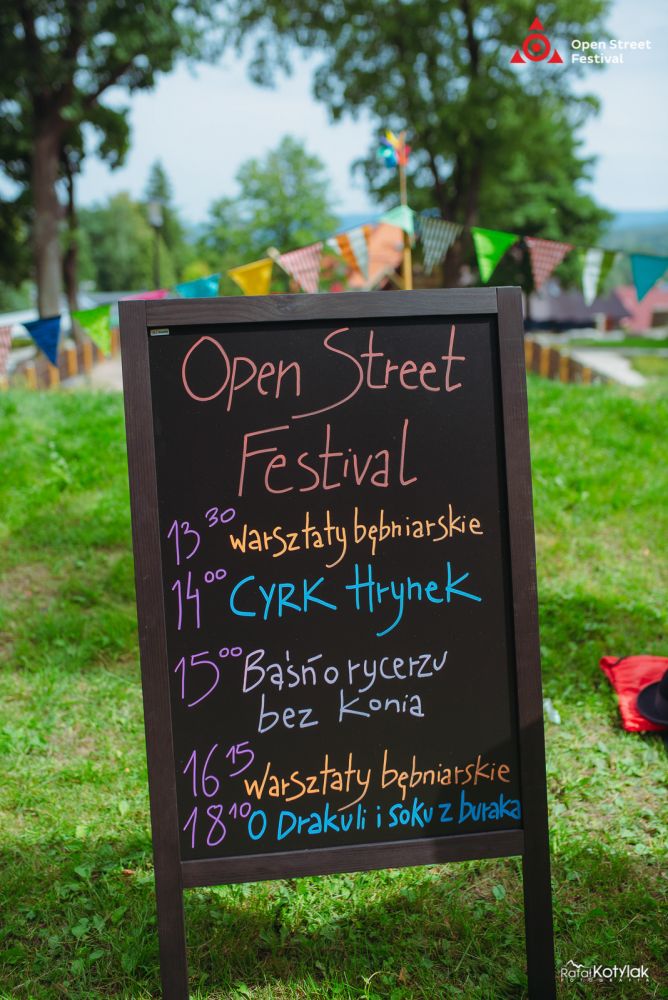 Open Street
Festival
Open Street
Festival
13 30 warsztaty bębniarskie
14 00 CYRK Hrynek
15 00 Baśń o rycerzu
bez Konia
16 15 warsztaty bębniarskie
18 10 O Drakuli i soku z buraka
Rafał Kotylak
FOTOGRAFIA